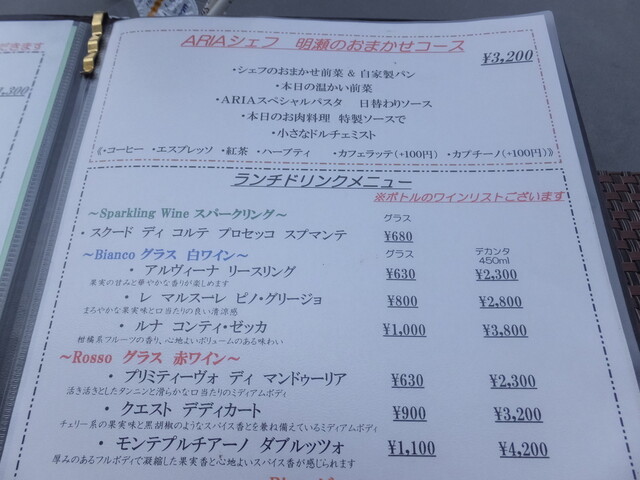 だきます
,300
ARIAシェフ 明瀬のおまかせコース
¥3,200
・シェフのおまかせ前菜 & 自家製パン
・本日の温かい前菜
・ARIAスペシャルパスタ 日替わりソース
・本日のお肉料理 特製ソースで
・小さなドルチェミスト
《・コーヒー ・エスプレッソ ・紅茶 ・ハーブティ ・カフェラッテ(+100円) ・カプチーノ(+100円)》
ランチドリンクメニュー
※ボトルのワインリストございます
～Sparkling Wine スパークリング～ グラス
・スクード ディ コルテ プロセッコ スプマンテ ¥680
～Bianco グラス 白ワイン～ グラス デカンタ
450ml
・アルヴィーナ リースリング ¥630 ¥2,300
果実の甘みと華やかな香りが楽しめます
・レ マルスーレ ピノ・グリージョ ¥800 ¥2,800
まろやかな果実味と口当たりの良い清涼感
・ルナ コンティ・ゼッカ ¥1,000 ¥3,800
柑橘系フルーツの香り、心地よいボリュームのある味わい
～Rosso グラス 赤ワイン～
・プリミティーヴォ ディ マンドゥーリア ¥630 ¥2,300
活き活きとしたタンニンと滑らかな口当たりのミディアムボディ
・クエスト デディカート ¥900 ¥3,200
チェリー系の果実味と黒胡椒のようなスパイス香とを兼ね備えているミディアムボディ
・モンテプルチアーノ ダブルッツォ ¥1,100 ¥4,200
厚みのあるフルボディで凝縮した果実香と心地よいスパイス香が感じられます